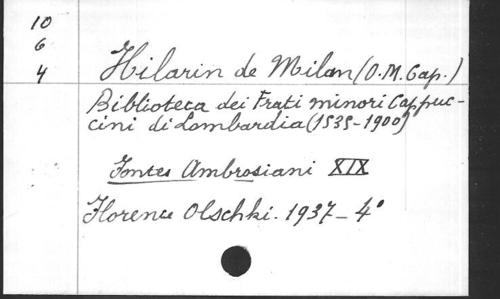 10
6
4
Hilarin de Milan (O.M.Cap.)
Biblioteca dei Frati minori Cappuc-
cini di Lombardia (1535-1900)
Fontes Ambrosiani XIX
Florence Olschki. 1937 - 4°